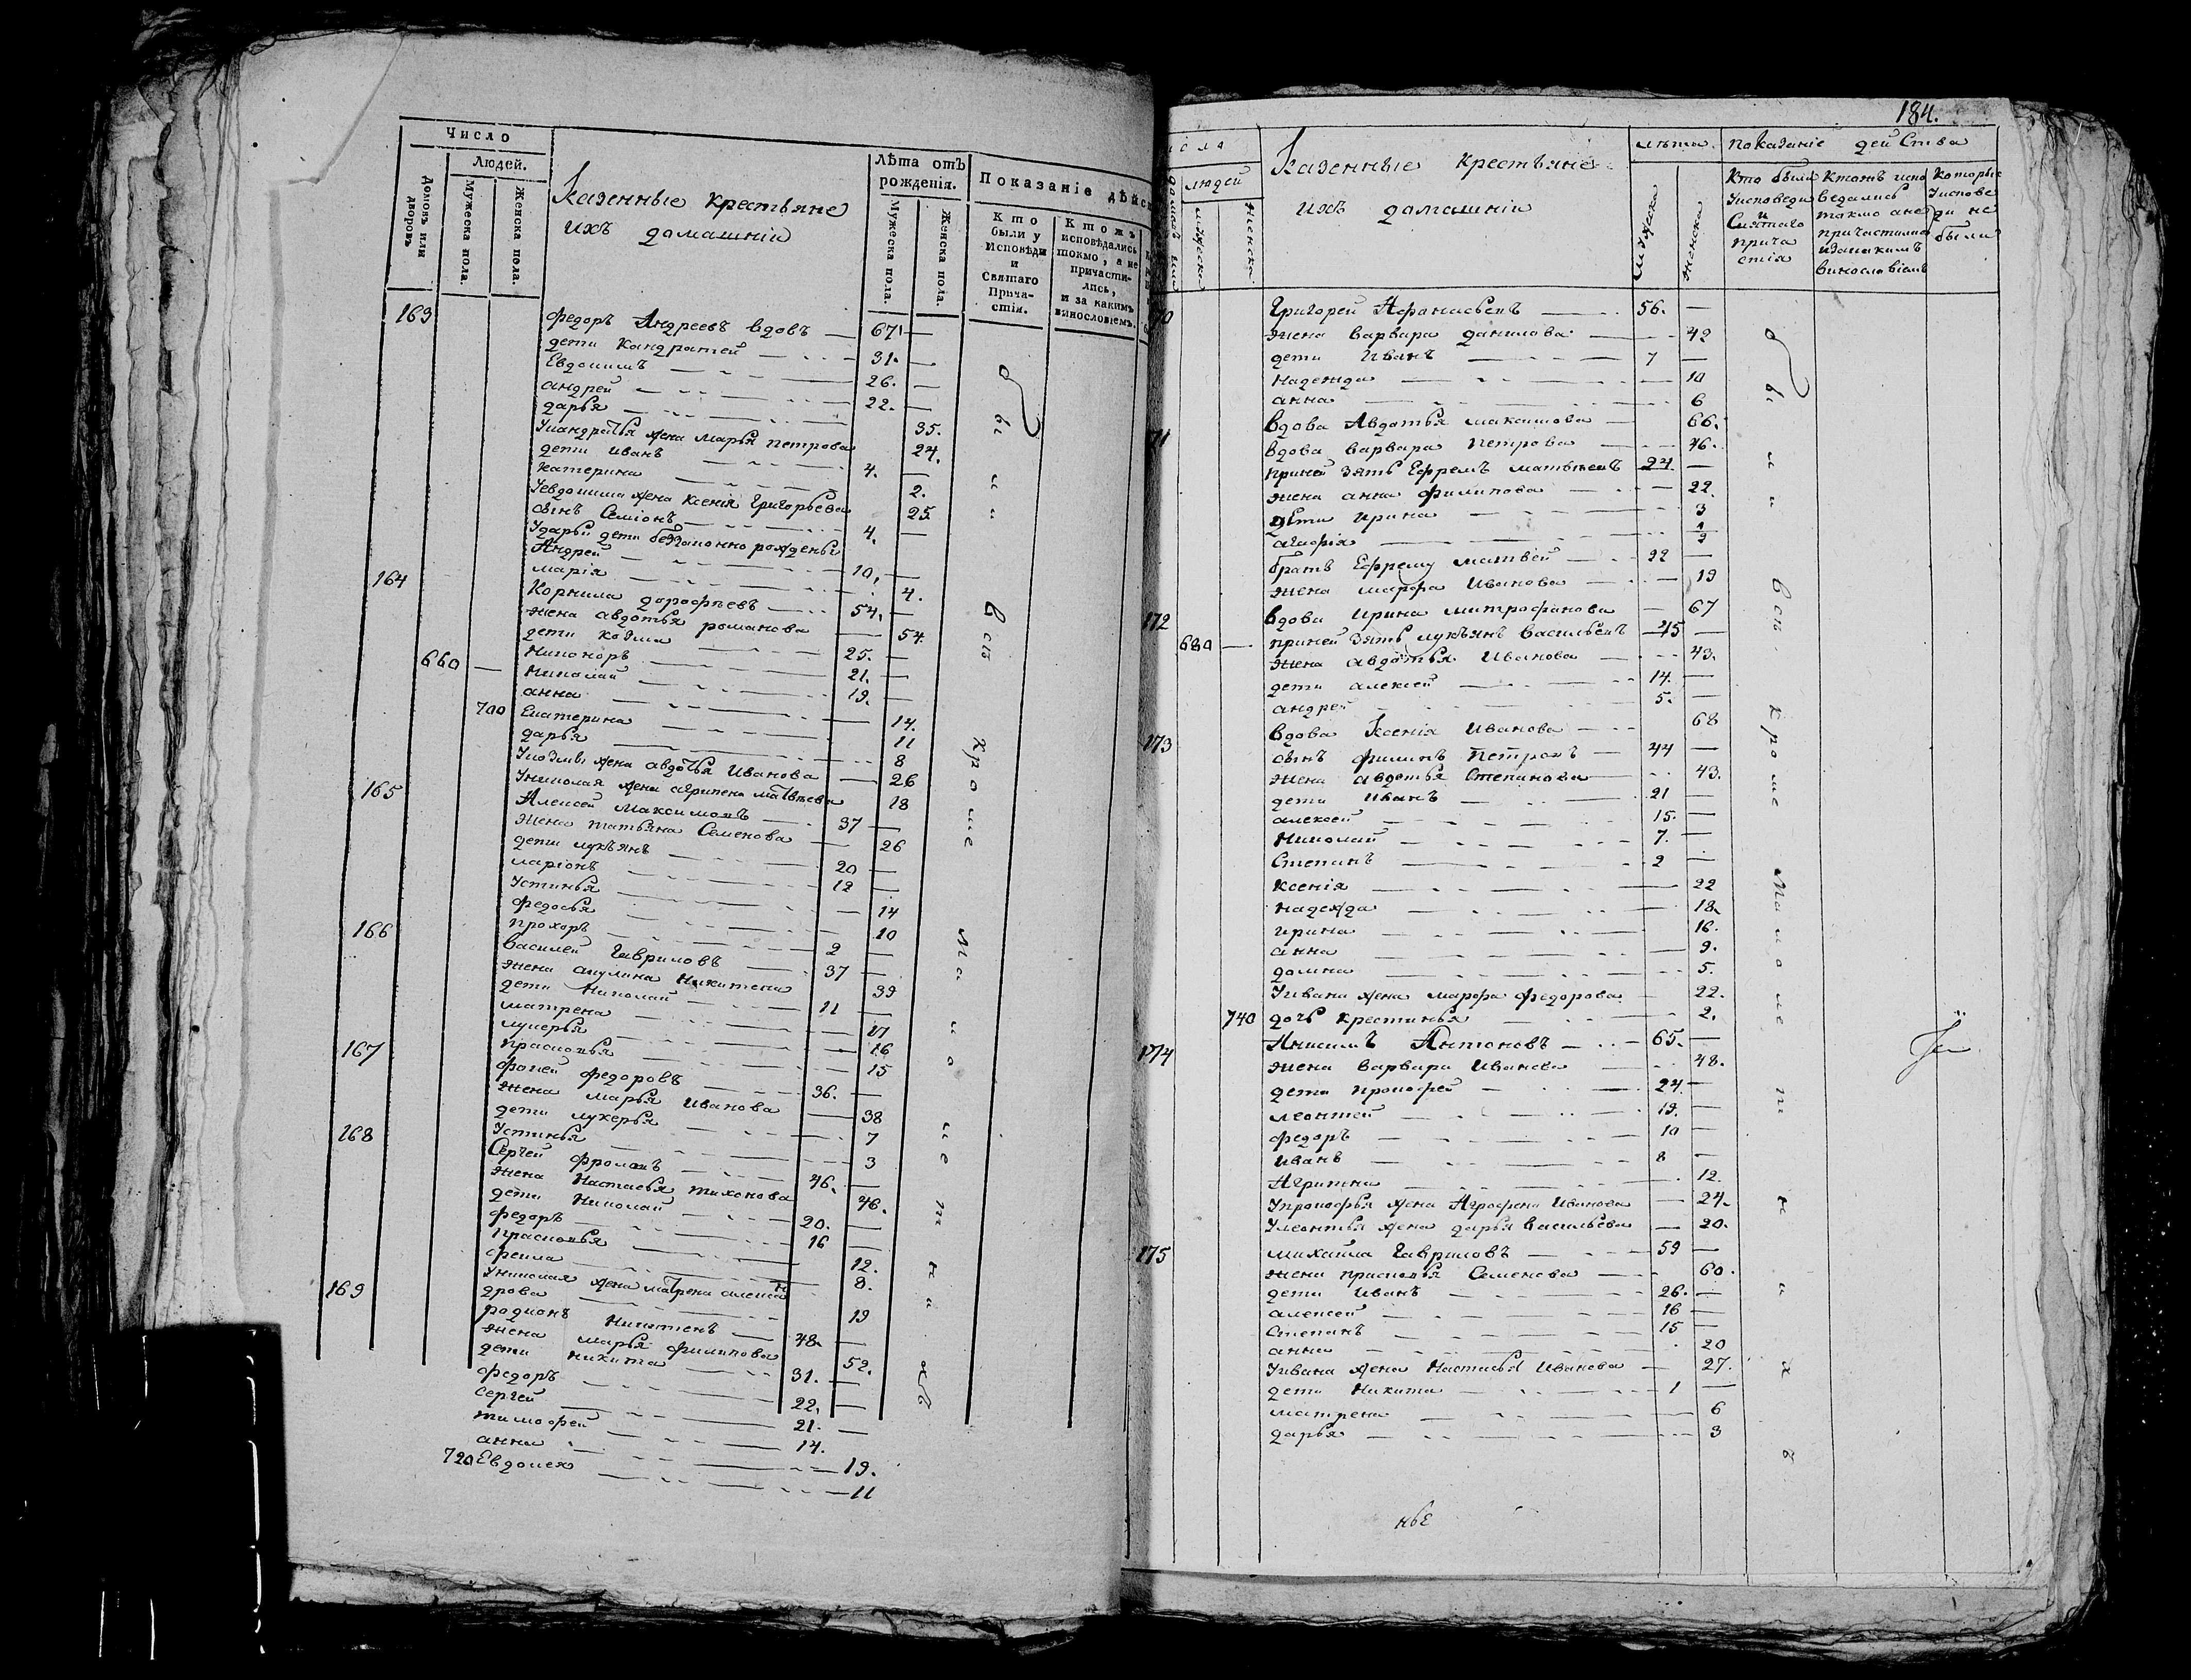 Число
Людей.
Домовъ или дворовъ.
Мужеска пола.
Женска пола.
Казенные крестьяне
ихъ домашнiи
Лѣта отъ рожденiя.
Мужеска пола.
Женска пола.
Показанiе дѣйс
Кто были у Исповѣди и Святаго Прича-стiя.
Ктожъ исповѣдались токмо, а не причасти-лись, и за какимъ винословiемъ.
163 федоръ Андреевъ вдовъ — 67 —
дети Кандратей — 31. —
Евдокимъ — 26. —
андрей — 22. —
дарья — 35.
Укандратья жена марья петрова 24.
дети иванъ — 4. —
катерина — 2.
Уевдокима жена ксенiя Григорьева 25.
сынъ Семiонъ — 4. —
Ударьи дети беззаконно рожденыи
Андрей — 10. —
марiя — 4.
164 Корнила дорофѣевъ — 54. —
жена авдотья романова — 54
дети козма — 25. —
Никоноръ — 21. —
660 — Николай — 19. —
анна — 14.
700 Екатерина — 11
дарья — 8
Укозмы жена авдотья Иванова — 26
Униколая жена агрипена матвѣева 18
165 Алексей максимовъ — 37 —
жена татьяна Семенова — 26
дети лукьянъ — 20 —
ларiонъ — 12 —
Устинья — 14
федосья — 10
прохоръ — 2 —
166 василей Гавриловъ — 37 —
жена акулина Никитена 39
дети Николай — 11 —
матрена — 17
лукерья — 16
прасковья — 15
167 фокей федоровъ — 36. —
жена марья иванова — 38
дети лукерья — 7
Устинья — 3
168 Сергей фроловъ — 46. —
жена Настасья тихонова 46.
дети Николай — 20. —
федоръ — 16 —
прасковья — 12.
фекла — 8.
Униколая жена матрена алексан
дрова — 19
169 родионъ Никитенъ — 48. —
жена марья филипова 52.
дети никита — 31. —
федоръ — 22. —
сергей — 21. —
тимофей — 14.
анна — 19.
720 Евдокея — 11
бы
и
и
всѣ
кроме
малолетнихъ
184.
людей
мужеска
женска
Казенные крестьяне
ихъ домашнiи
лѣта
мужеска
женска
показанiе действа
кто были Уисповеди и Святаго прича стiя
ктожъ испо ведались токмо ане причастились изакакимъ винословiемъ
которые Уисповеди не были
70 Григорей Афанасьевъ — 56. —
жена варвара данилова — 42
дети Иванъ — 7 —
Надежда — 10
анна — 6
вдова Авдотья максимова — 66.
71 вдова варвара петрова — 46.
приней зять Ефремъ матвѣевъ 24. —
жена анна филипова — 22.
дѣти ирина — 3
агафiя — 1/2
братъ Ефрему матвей — 22 —
жена марфа Иванова — 19
172 вдова ирина митрофанова — 67
680 — приней зять лукьянъ васильевъ 45 —
жена авдотья Иванова — 43.
дети алексей — 14. —
андрей — 5. —
173 вдова Ксенiя Иванова — 68
сынъ филипъ петровъ — 44 —
жена авдотья Степанова — 43.
дети иванъ — 21 —
алексей — 15. —
Николай — 7. —
Степанъ — 2 —
ксенiя — 22
надежда — 18
ирина — 16.
анна — 9.
домна — 5.
Уивана жена марфа федорова — 22.
740 дочь крестинья — 2.
174 Анисимъ Антоновъ — 65. —
жена варвара Иванова — 48.
дети прокофей — 24 —
леонтей — 19. —
федоръ — 10 —
иванъ — 8 —
Агрипина — 12.
Упрокофья жена Агрофена Иванова — 24.
Улеонтья жена дарья васильева — 20.
175 михаила Гавриловъ — 59 —
жена прасковья Семенова — 60.
дети Иванъ — 26. —
алексей — 16 —
степанъ — 15 —
анна — 20
Уивана жена Настасья Иванова — 27.
дети Никита — 1 —
матрена — 6
дарья — 3
бы
и
и
всѣ
кроме
малолетнихъ